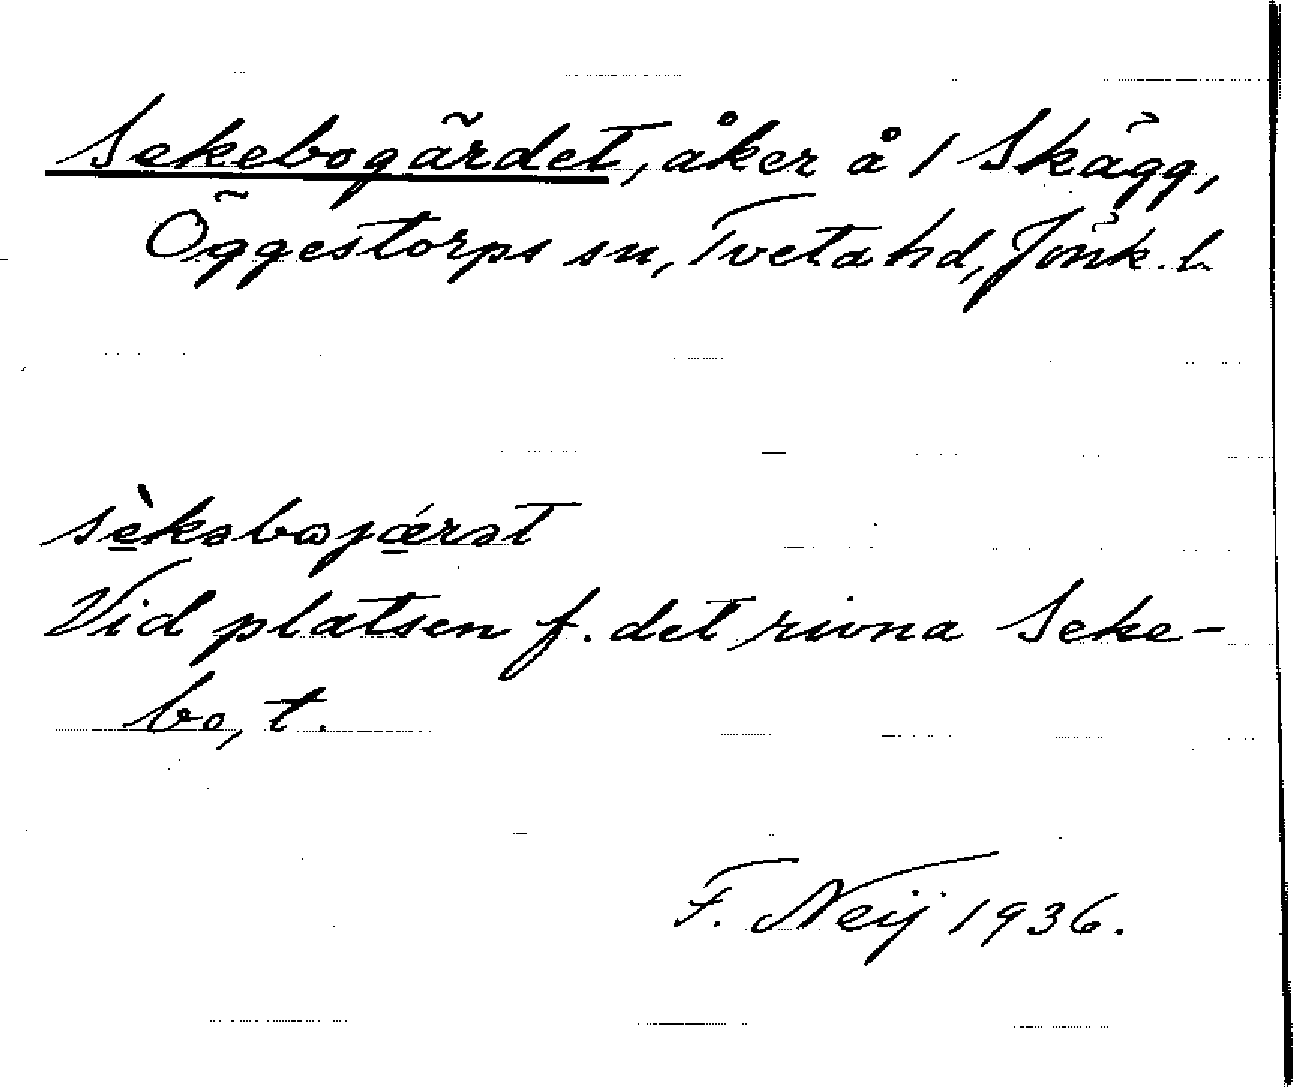 Sekebogärdet, åker å 1 Skägg,
Öggestorps sn, Tveta hd, Jönk. l.
sè̱kəbωjǽ̱rət
Vid platsen f. det rivna Seke-
bo, t.
F. Neij 1936.